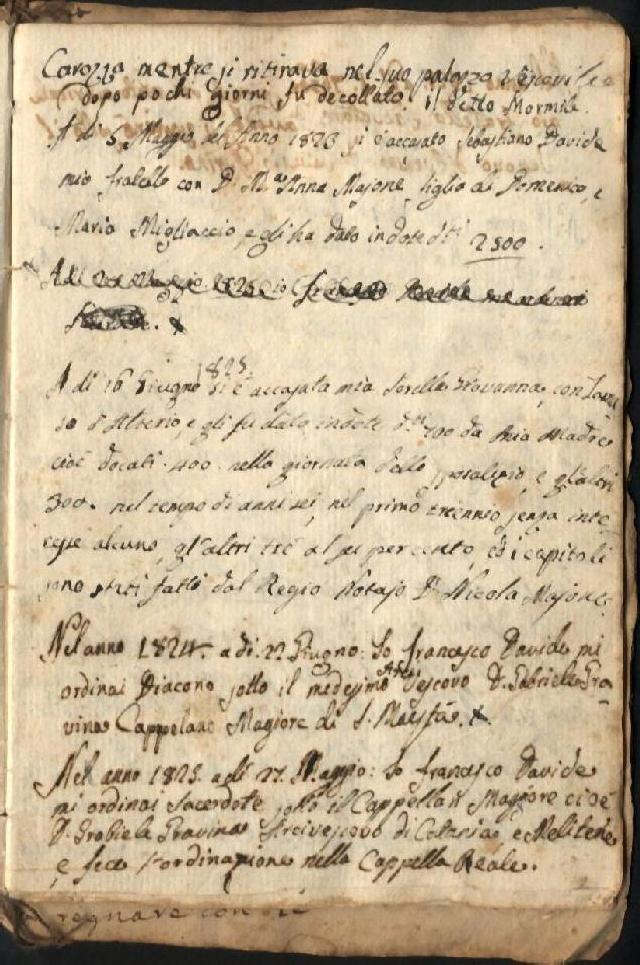 Carozza mentre si ritirava nel suo palazzo Vescovile
dopo pochi giorni fu decollato il detto Mormile.
A di 5 Maggio del Anno 1823 si è accasato Sebastiano Davide
mio fratello con D. M.a Anna Majone, figlia di Domenico, e
Maria Migliaccio, e gli ha dato in dote d.ti 2500.
A di
A di 16 Giugno 1825 si è accasata mia sorella Giovanna, con
so d'Alterio, e gli fu dato in dote d.ti 700 da mia Madre
cioè docati 400 nella giornata dello sposalizio, e gl'altri
300. nel tempo di anni sei, nel primo triennio senza inte
resse alcuno, gl'altri tre al sei per cento, ed i capitoli
sono stati fatti dal Regio Notajo D. Nicola Majone.
Nel anno 1824. a di 22 Giugno: Io Francesco Davide mi
ordinai Diacono sotto il medesimo Vescovo D. Gabriele Gra
vina Cappelano Magiore di S. Maestà.
Nel anno 1825. a di 27. Maggio: Io Francesco Davide
mi ordinai Sacerdote sotto il Cappellan Magiore cioè
D. Grabiele Gravina Arcivescovo di Catania e Melitene
e fece l'ordinazione nella Cappella Reale.
regnare con